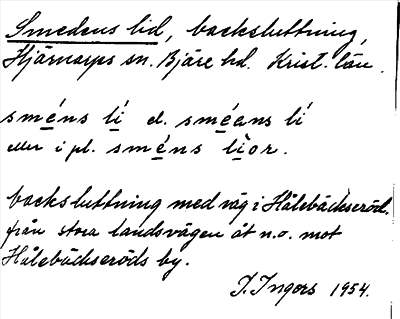 Smedens lid, backsluttning,
Hjärnarps sn. Bjäre hd. Krist. län.
sméns lí el. sméans lí
eller i pl. sméns lìor.
backsluttning med väg i Hålebäckseröd.
från stora landsvägen åt n.o. mot
Hålebäckseröds by.
I. Ingers 1954.